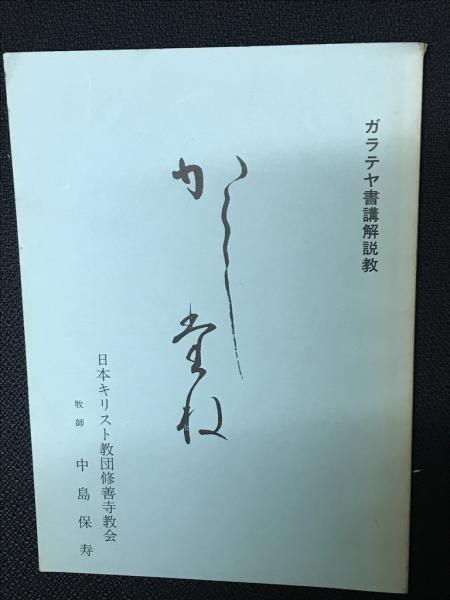 ガラテヤ書講解説教
からしたね
日本キリスト教団修善寺教会
牧師 中島保寿